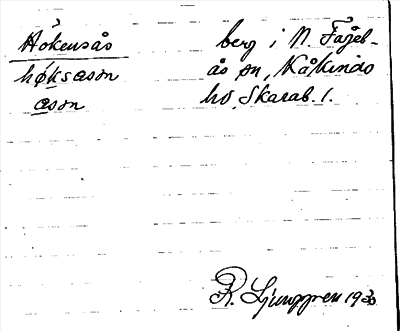 Hökensås
høksason
ason
berg i N. Fågel-
ås sn, Kåkinds
hd, Skarab. l.
R. Ljunggren 1930